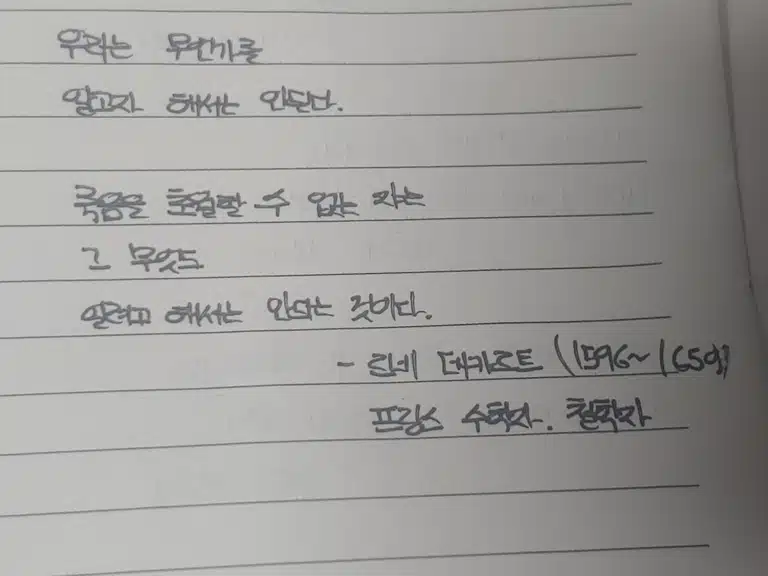 우리는 무언가를
알고자 해서는 안된다.
죽음을 초월할 수 없는 자는
그 무엇도
알려고 해서는 안되는 것이다.
- 르네 데카르트 (1596~1650)
프랑스 수학자. 철학자